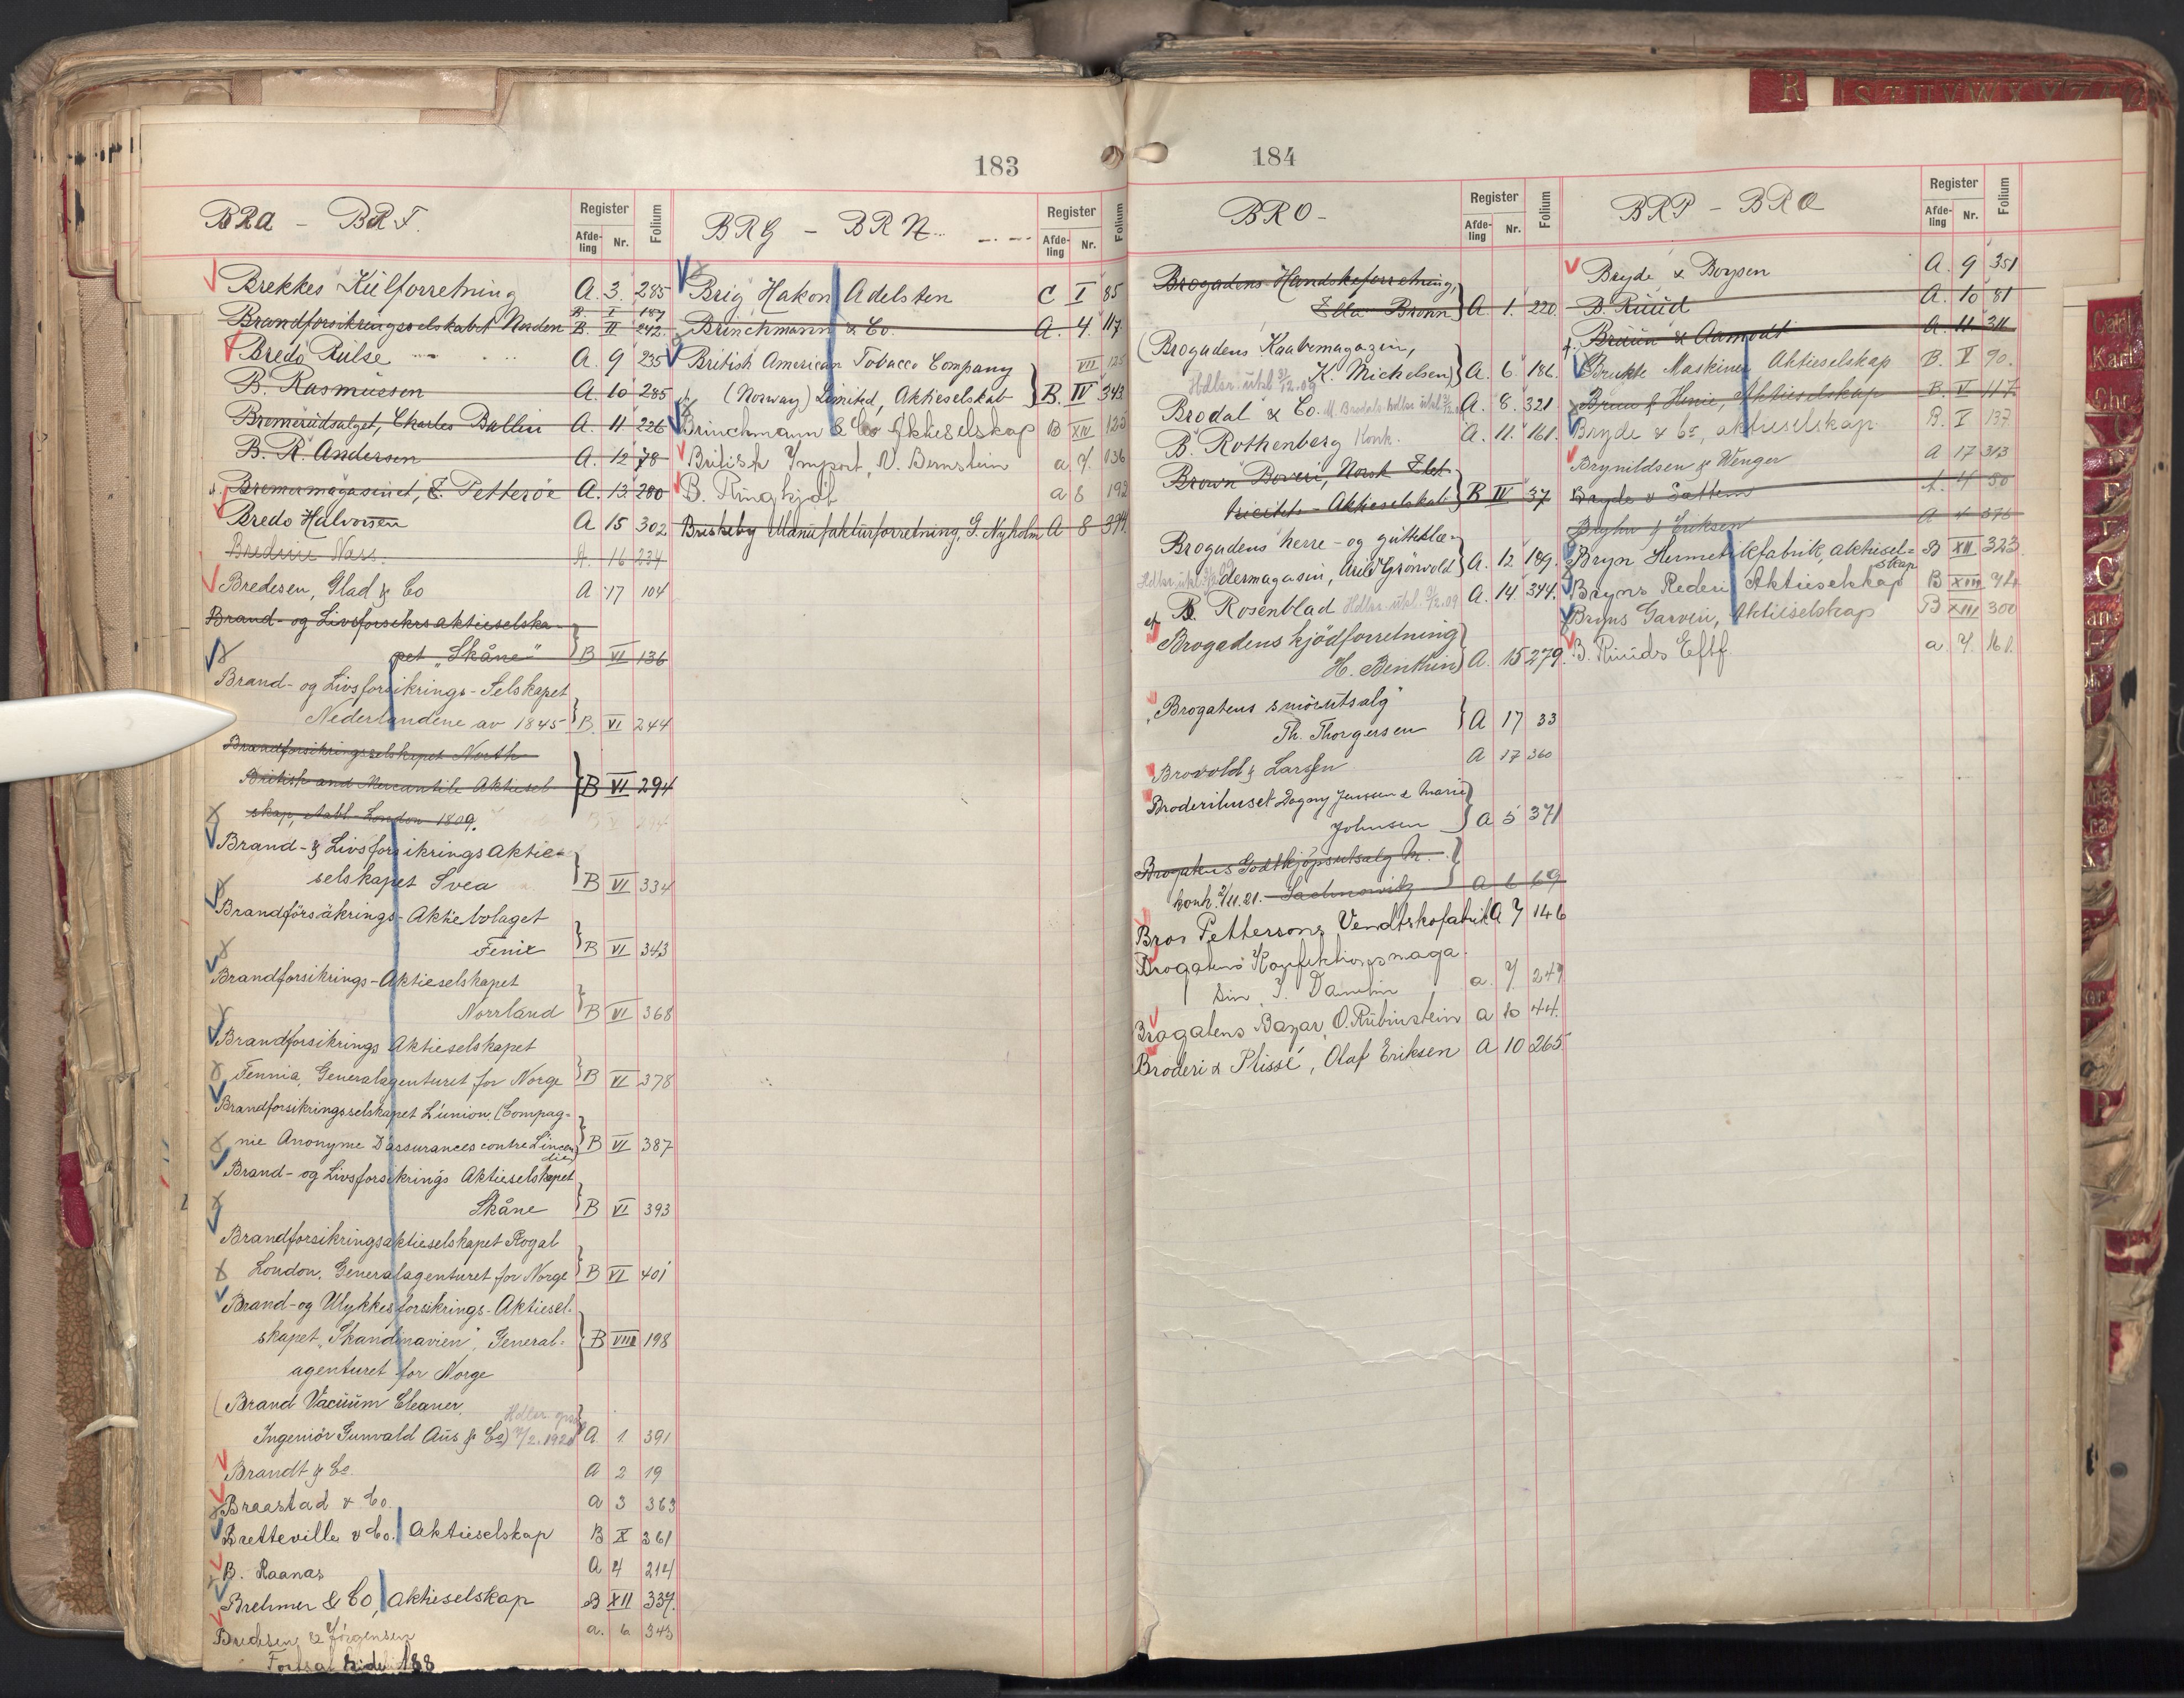 183
BRA - BRF.
Register
Afde-
ling
Nr.
Folium
Brekkes Kulforretning A. 3. 285
B. I 187
Brandforsikringsselskabet Norden B. II 242
Bredo Rulse A. 9 235
B. Rasmussen A. 10 285
Bremerudsalget, Charles Ballin A. 11 226
B. R. Andersen A. 12 78
Bremermagasinet, E. Petterøe A. 13 280
Bredo Halvorsen A 15 302
A. 16 234
Bredesen, Glad & Co A 17 104
Brand- og Livsforsikrs aktieselska-
pet "Skåne" B VI 136
Brand- og Livsforsikrings-Selskapet
Nederlandene av 1845 B. VI 244
Brandforsikringsselskapet North
British and Mercantile Aktiesel- B VI 294
skap, etabl. London 1809.
Brand- & Livsforsikrings Aktie-
selskapet Svea B VI 334
Brandförsäkrings-Aktiebolaget
Fenix B VI 343
Brandforsikrings-Aktieselskapet
Norrland B VI 368
Brandforsikrings Aktieselskapet
Fennia, Generalagenturet for Norge B VI 378
Brandforsikringsselskapet L'union (Compag-
nie Anonyme D'assurances contre L'incen-
die) B VI 387
Brand- og Livsforsikrings Aktieselskapet
Skåne B VI 393
Brandforsikringsaktieselskapet Rogal
London, Generalagenturet for Norge B VI 401
Brand- og Ulykkesforsikrings-Aktiesel-
skapet "Skandinavien", General- B VIII 198
agenturet for Norge
(Brand Vacuum Cleaner,
Ingeniör Gunvald Aus & Co) A. 1. 391
Brandt & Co. A 2 19
Braastad & Co. A 3 363
Bretteville & Co. Aktieselskap B X 361
B. Raanas A 4 214
Brehmer & Co, Aktieselskap B XII 337.
Bredesen & Jörgensen a. 6 343
Fortsat side 188
BRG - BRN.
Register
Afde-
ling
Nr.
Folium
Brig Hakon Adelsten C I 85
Brinchmann & Co. A. 4. 117
British American Tobacco Company VII 125
(Norway) Limited, Aktieselskab B. IV 343
Brinchmann & Co Aktieselskap B XIV 123
British Import, N. Bernstein a 7. 136
B. Ringkjöb a 8 192
Briskeby Manufakturforretning, G. Nyholm A 8 394
184
BRO-
Register
Afde-
ling
Nr.
Folium
Brogadens Handskeforretning,
Ella Bronn A 1. 220.
(Brogadens Kaabemagazin,
K. Michelsen) A. 6. 186.
Hdlsr. utkl 31/12.09
Brodal & Co. M. Brodals hdlsr utkl A. 8. 321
B. Rothenberg Konk. A. 11. 161.
Brown Boveri, Norsk Elek-
tricitets-Aktieselskab B IV 37
Brogadens herre- og gutteklæ-
dermagasin, Arild Grönvold A. 12 189.
B. Rosenblad Hdlsr. utkl. 12.09 A. 14. 344.
Brogadens kjödforretning
H. Benthin) A. 15 279.
"Brogatens smörutsalg"
Th. Thorgersen A 17 33
Brovold & Larssen A 17 360
Broderihuset Dagny Jenssen & Marie
Johnsen A 5 371
Brogatens Godtkjöpsutsalg
konk. 2/11.21. Sachnowitz A 6 69
Bros Pettersons Vendtskofabrik A 7 146
Brogatens Konfektionsmaga-
sin, I. Damelin a. 7. 249
Brogatens Bazar, O. Rubinstein a 10 44.
Broderi & Plissé, Olaf Eriksen A 10 265
BRP - BRØ
Register
Afde-
ling
Nr.
Folium
Bryde & Borpsen A. 9 351
B. Ruud A. 10 81
Bruun & Aamodt A. 11. 311
Brukte Maskiner Aktieselskap B. V 90.
Aktieselskap B. V 117
Bryde & Co, aktieselskap B. V 137
Brynildsen & Wenger A 17 313
Bryde & Sattem A. 4 50
Bryhn & Eriksen A 4 376
Bryn Hermetikfabrik, aktiesel-
skap B XII 323
Bryns Rederi Aktieselskap B XIII 72
Bryns Garveri, Aktieselskap B XIII 300
B. Ruuds Eftf. a. 7. 161.